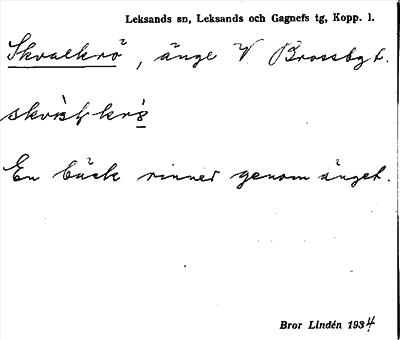 Leksands sn, Leksands och Gagnefs tg, Kopp. l.
Skvalkro, änge V. Brossbgt.
En bäck rinner genom änget.
Bror Lindén 1934